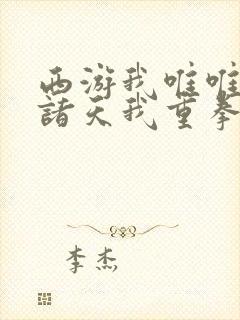 西游我唯唯
諸天我重拳
李杰